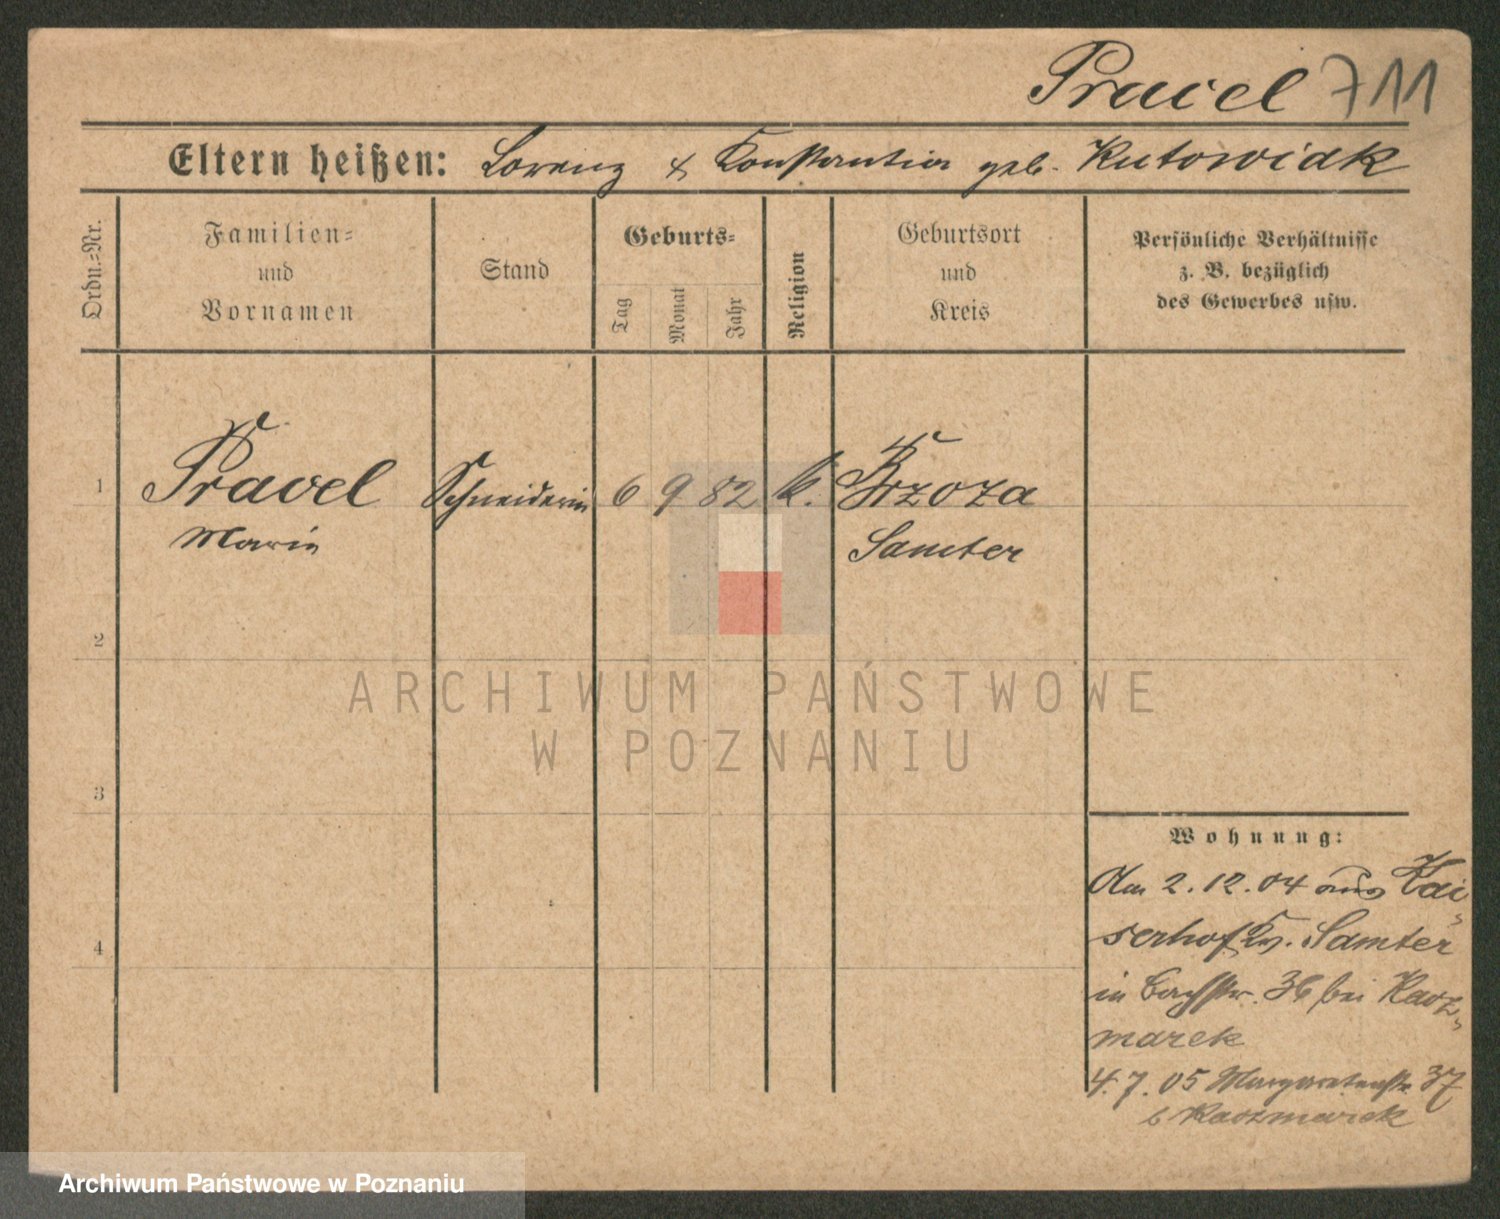 Pravel 711
Eltern heißen: Lorenz & Konstantia geb. Kutowiak
Ordn.-Nr.
Familien-
und
Vornamen
Stand
Geburts-
Tag
Monat
Jahr
Religion
Geburtsort
und
Kreis
Persönliche Verhältnisse
z. B. bezüglich
des Gewerbes usw.
1 Pravel Schneiderin 6 9 82 k. Brzoza
Marie Samter
2
3
4
ARCHIWUM PAŃSTWOWE
W POZNANIU
Wohnung:
Am 2.12.04 aus Kai-
serhof Kr. Samter
in Bachstr. 36 bei Kacz-
marek
4.7.05 Margaretenstr. 37
b Kaczmarek
Archiwum Państwowe w Poznaniu